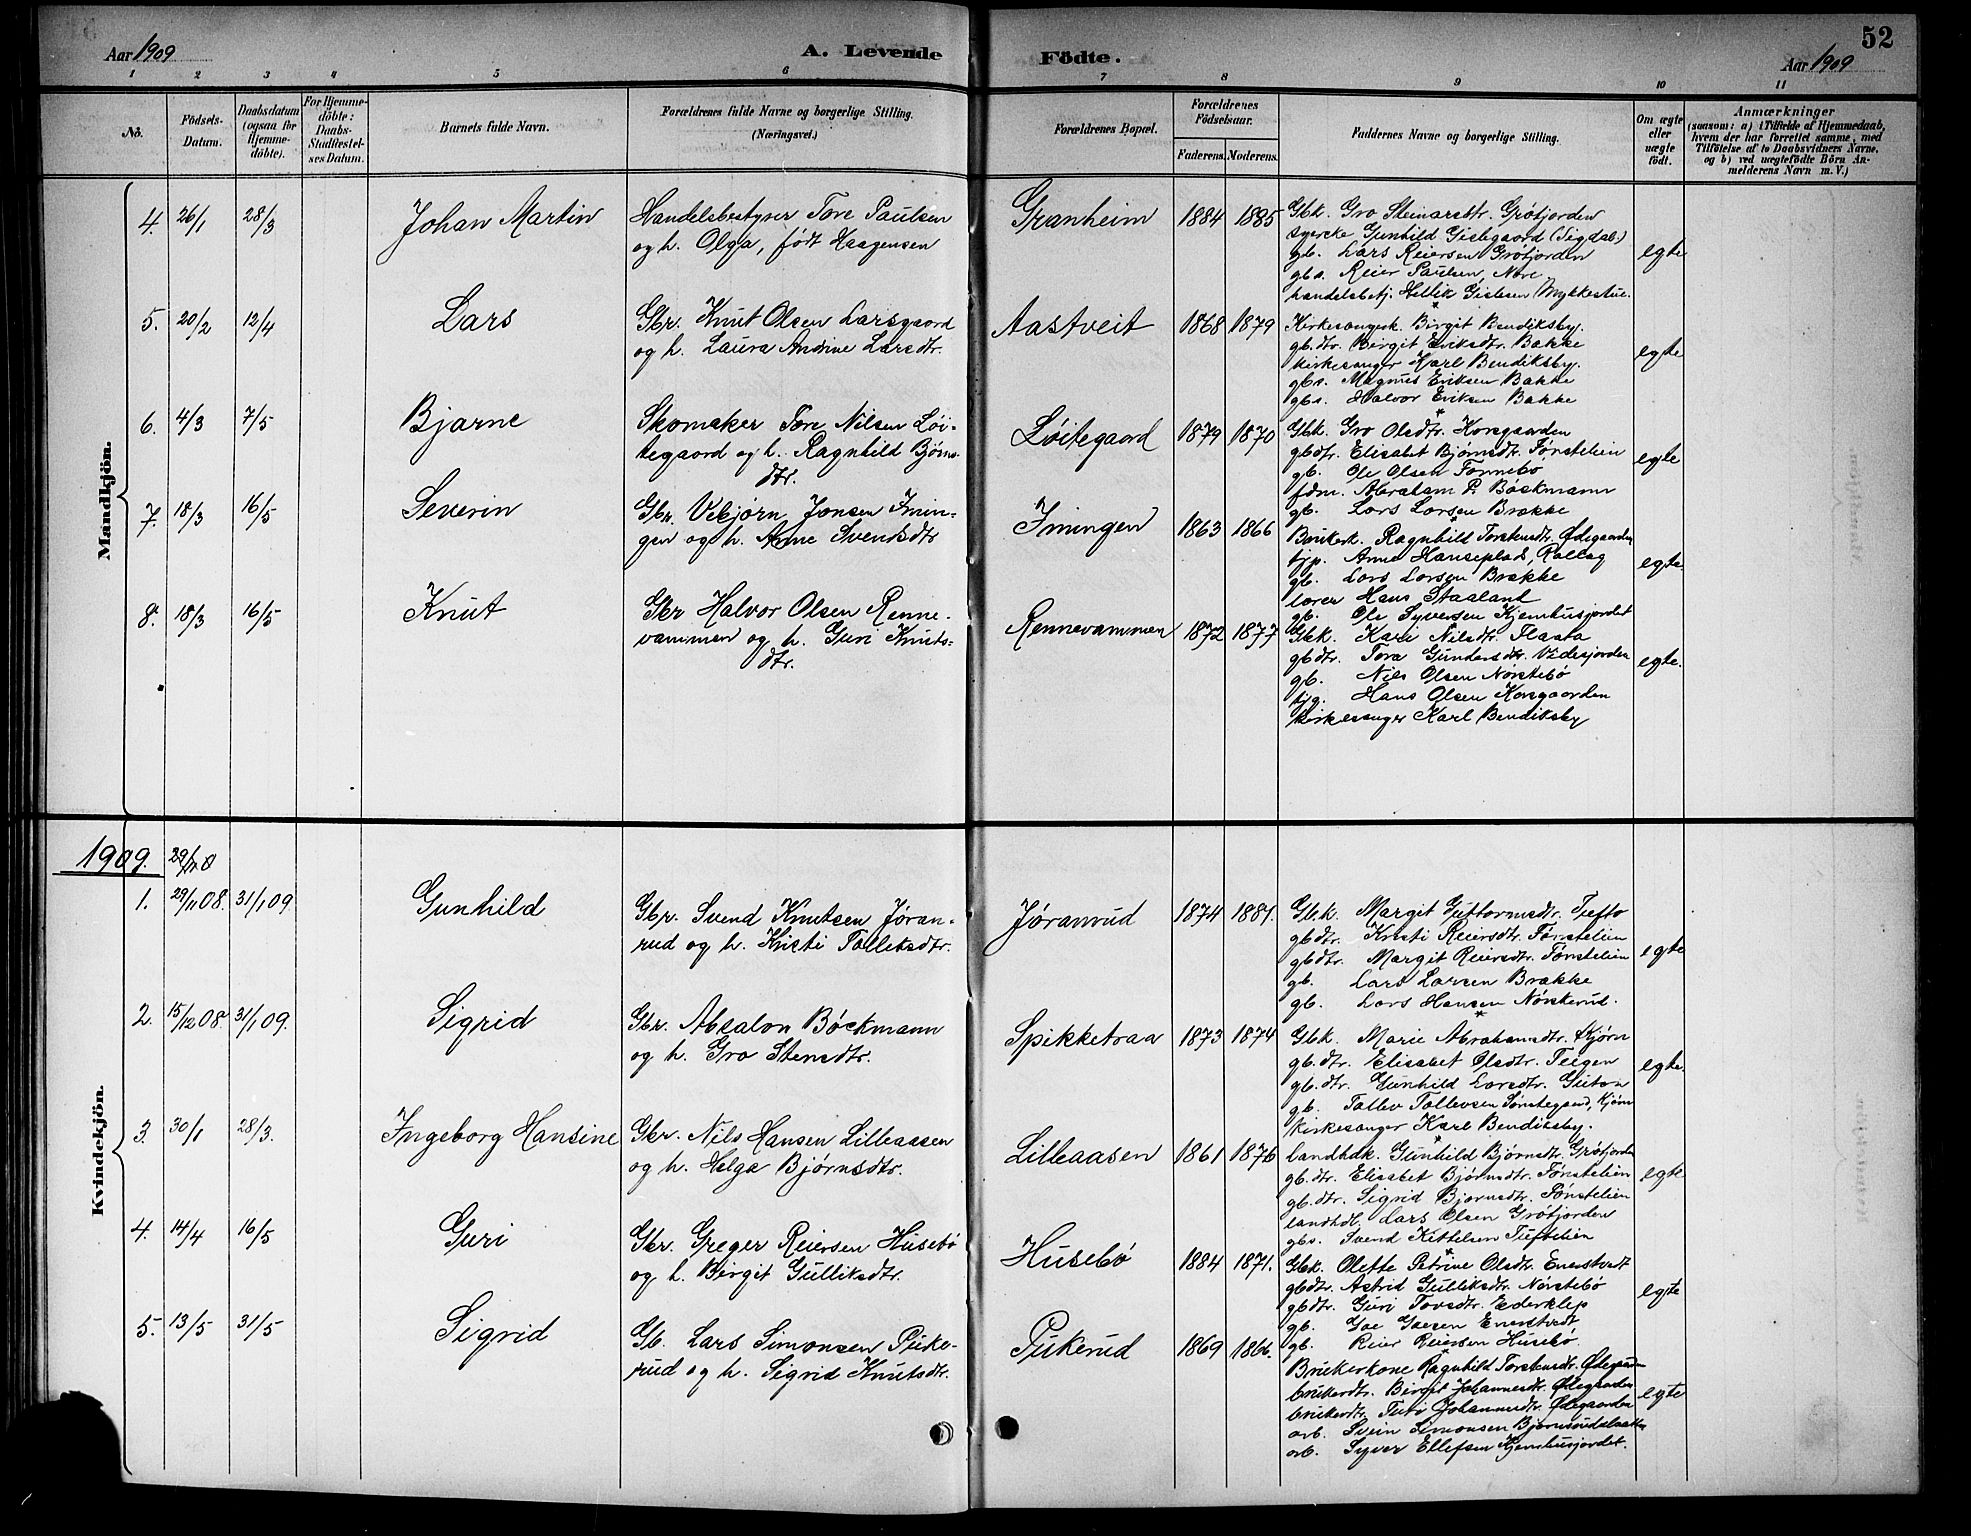 52
Aar 1909
A. Levende
Födte.
Aar 1909
1 2 3 4 5 6 7 8 9 10 11
No.
Födsels-
Datum.
Daabsdatum
(ogsaa for
Hjemme-
döbte).
For Hjemme-
döbte:
Daabs-
Stadfæstel-
ses Datum.
Barnets fulde Navn.
Forældrenes fulde Navne og borgerlige Stilling.
(Næringsvei.)
Forældrenes Bopæl.
Forældrenes
Födselsaar.
Faderens.
Moderens.
Faddernes Navne og borgerlige Stilling.
Om ægte
eller
uægte
födt.
Anmærkninger
(saasom: a) i Tilfælde af Hjemmedaab,
hvem der har forrettet samme, med
Tilföielse af to Daabsvidners Navne,
og b) ved uægtefödte Börn An-
melderens Navn m. V.)
Mandkjön.
4. 26/1 28/3 Johan Martin
Handelsbestyrer Tore Paulsen
og h. Olga, født Haagensen
Granheim 1884 1885
Gbk. Gro Steinarsdtr. Grøtjorden
syerske Gunhild Gislegaard (Sigdal)
gb. Lars Reiersen Grøtjorden
gbs. Reier Paulsen Nore
handelsbetj. Hellik Gislesen Mykkestue.
egte
5. 20/2 12/4 Lars
Gbr. Knut Olsen Larsgaard
og h. Laura Andrine Larsdtr.
Aastveit 1868 1879
Kirkesangersk. Birgit Bendiksby.
gb.dtr. Birgit Eriksdtr. Bakke
kirkesanger Karl Bendiksby.
gbs. Magnus Eriksen Bakke
gbs. Halvor Eriksen Bakke
egte
6. 4/3 7/5 Bjarne
Skomaker Tore Nilsen Løi-
tegaard og h. Ragnhild Bjørns-
dtr.
Løitegaard 1879 1870
Gbk. Gro Olsdtr. Korsgaarden
gbdtr. Elisabet Bjørnsdtr. Tønstelien
gb. Ole Olsen Tonnebo
fdm. Abraham P. Bøckmann
gb. Lars Larsen Brække
egte
7. 18/3 16/5 Severin
Gbr. Vebjørn Jonsen Imin-
gen og h. Anne Svendsdtr
Imingen 1863 1866
Brukerk. Ragnhild Torstensdtr. Ødegaarden
tjp. Anne Hanseplads, Rollag
gb. Lars Larsen Brække
lærer Hans Staaland
gb. Ole Syversen Kjemhusjordet
egte.
8. 18/3 16/5 Knut
Gbr Halvor Olsen Renne-
vammen og h. Guri Knuts-
dtr.
Rennevammen 1872 1877
Gbk. Kari Nilsdtr. Flaata
gbdtr. Tora Gundersdtr. Videsjorden
gb. Nils Olsen Nørstebø
tjg. Hans Olsen Korsgaarden
kirkesanger Karl Bendiksby
egte.
Kvindekjön.
1909.
1. 29/11 08. 31/1 09 Gunhild
Gbr. Svend Knutsen Jøran-
rud og h. Kristi Tolleksdtr.
Jøranrud 1874 1881.
Gbk. Margit Guttormsdtr. Tufto
gbdtr. Kristi Reiersdtr. Tønstelien
gbdtr. Margit Reiersdtr. Tønstelien
gb. Lars Larsen Brække
gb. Lars Hansen Nørskerud.
egte
2. 15/12 08. 31/1 09. Sigrid
Gbr. Absalon Bøckmann
og h. Gro Stensdtr.
Spikketraa 1873 1874
Gbk. Marie Abrahamsdtr. Skjørn
gb.dtr. Elisabet Olsdtr. Teigen
gb.dtr. Gunhild Larsdtr.
gb. Tollev Tollevsen Sønstegaard,
kirkesanger Karl Bendiksby.
egte.
3. 30/1 28/3. Ingeborg Hansine
Gbr. Nils Hansen Lilleaasen
og h. Helga Bjørnsdtr.
Lilleaasen 1861 1876
Landhdk. Gunhild Bjørnsdtr. Grøtjorden
gb.dtr. Elisabet Bjørnsdtr. Tønstelien
gb.dtr. Sigrid Bjørnsdtr. Tønstelien
landhdl. Lars Olsen Grøtjorden
gbs. Svend Kittelsen Tuftelien
egte
4. 14/4 16/5 Guri
Gbr. Greger Reiersen Husebø
og h. Birgit Gulliksdtr.
Husebö 1884 1871.
Gbk. Olette Petrine Olsdtr. Enerstvedt
gbdtr. Astrid Gulliksdtr. Nørstebø
gbdtr. Guri Tovsdtr. Ederklep
gb. Goe Goesen Enerstvedt
gb. Reier Reiersen Husebø.
egte
5. 13/5 31/5 Sigrid
Gb. Lars Simonsen Puke-
rud og h. Sigrid Knutsdtr.
Pukerud 1869 1866.
Brukerkone Ragnhild Torstensdtr. Ødegaarden
brukerdtr. Birgit Johannesdtr. Ødegaarden
brukerdtr. Johannesdtr. Ødegaarden
arb. Svein Simonsen
arb. Syver Ellefsen Kjemhusjordet.
egte